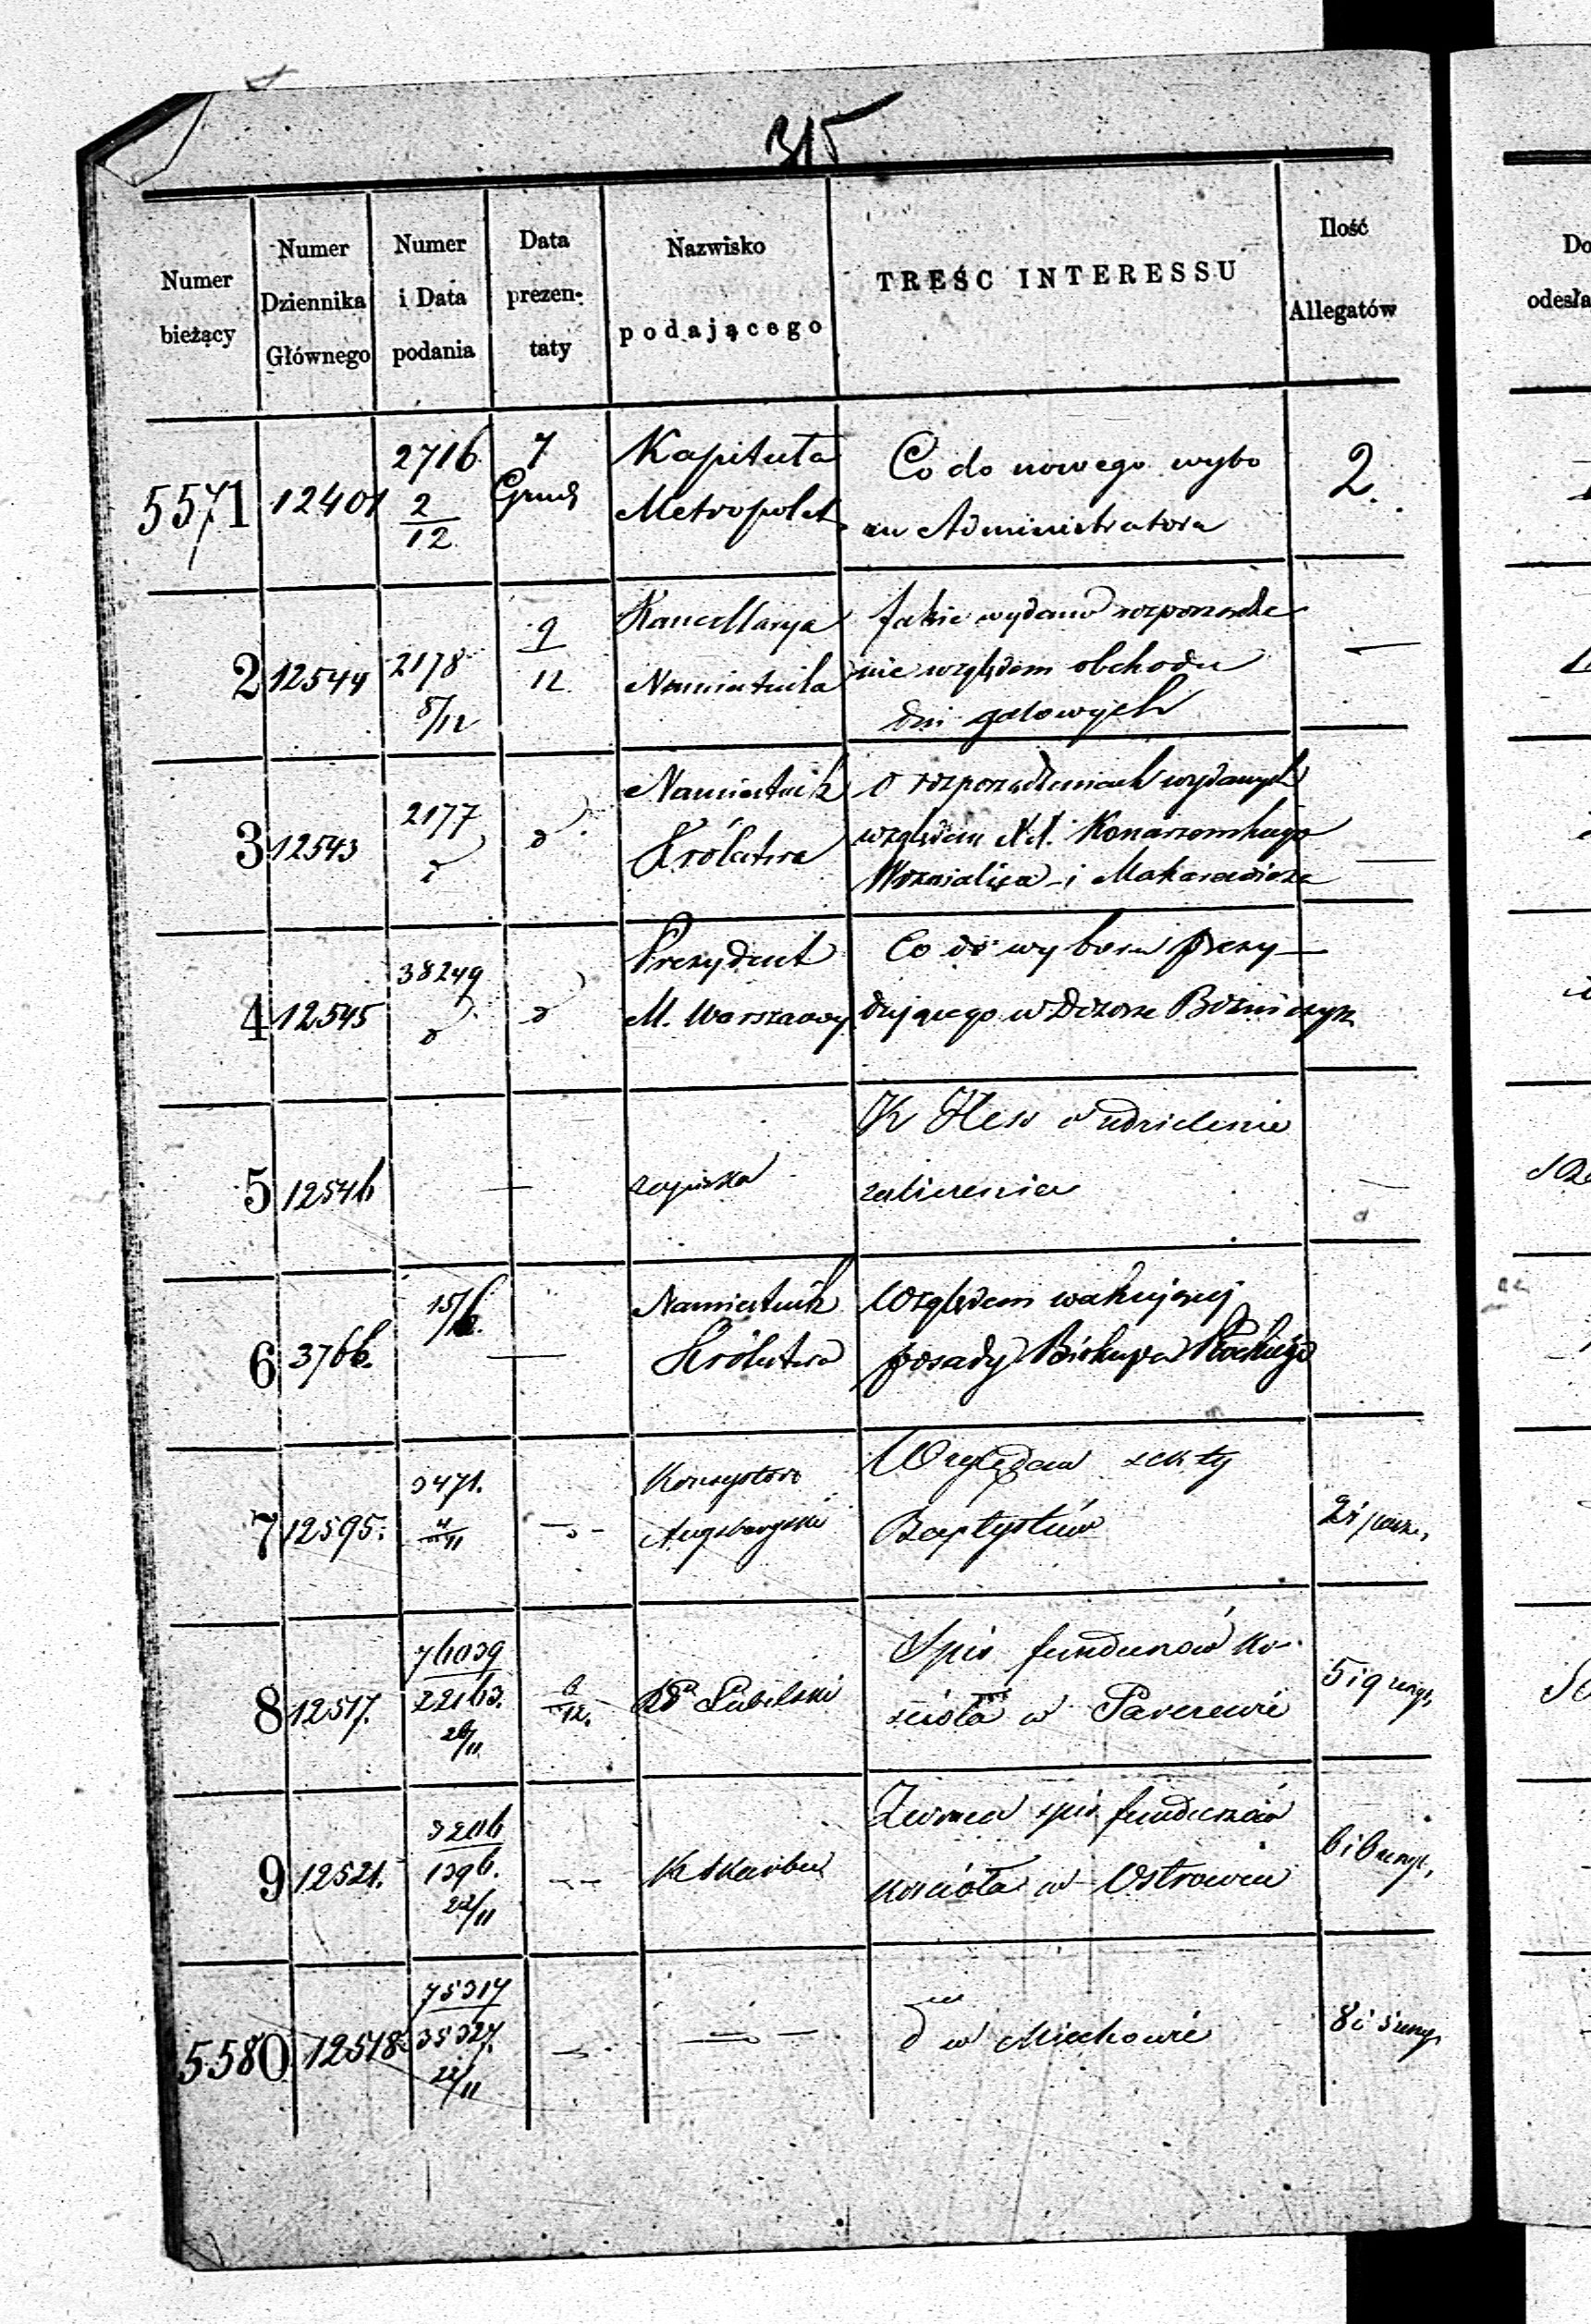 315
Numer bieżący
Numer Dziennika Głównego
Numer i Data podania
Data prezentaty
Nazwisko podającego
TREŚC INTERESSU
Ilość Allegatów
5571 12401 2716 2/12 7 Grud Kapituła Metropolit
Co do nowego wybo
ru Administratora
2.
2 12544 2178 8/12 9/12 Kancellarya Namiestnika
Jakie wydano rozporządze
nie względem obchodu
dni galowych
—
3 12543 2177 d d Namiestnik Królestwa
o rozporządzeniach wydanych
względem XX. Konarzewskiego
i Makarewicza
—
4 12545 38249 d d Prezydent M. Warszawy
Co do wyboru prezy—
dującego w Dozorze Bożniczym
5 12546 — zapiska
K Hess o udzielenie
zaliczenia
—
6 3766. 15/12. — Namiestnik Królestwa
Względem wakującej
posady Biskupa Płockiego
7 12595. 3471. 4/11 — Konsystorz Augsburgski
Względem sekty
Baptystów
8 12517. 76039 22163. 28/11 6/12. Lubelski
Spis funduszów ko-
ścioła w
9 12521. 3206 1396. 22/11 — K Skarbu
Zwraca spis funduszów
kościoła w Ostrowcu
5580 12518 75317 35327. 22/11 — —
d w Miechowie
Do
odesła